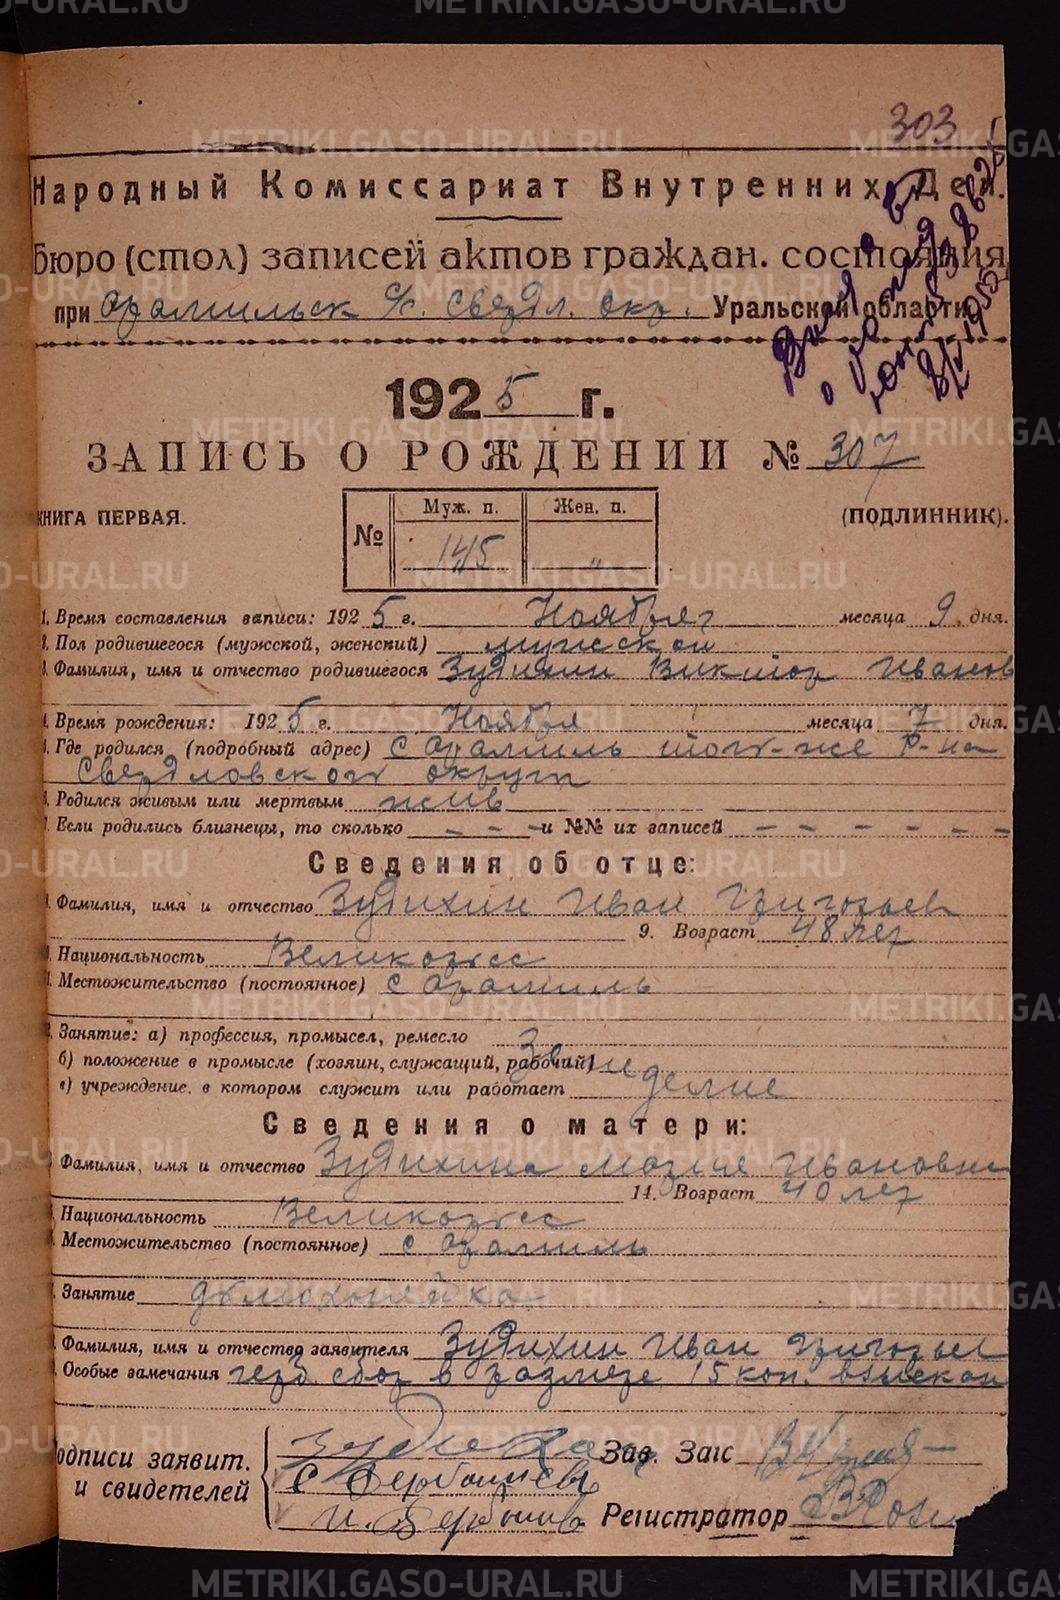 303
Народный Комиссариат Внутренних Дел.
бюро (стол) записей актов граждан. состояния
при Арамильск с/с. Свердл. окр. Уральской области.
1925 г.
ЗАПИСЬ О РОЖДЕНИИ № 307
КНИГА ПЕРВАЯ.
(ПОДЛИННИК).
№ Муж. п. Жен. п.
145 "
1. Время составления записи: 1925 г. Ноября месяца 9 дня.
2. Пол родившегося (мужской, женский) мужской
3. Фамилия, имя и отчество родившегося Зудихин Виктор Иванов
4. Время рождения: 1925 г. Ноября месяца 7 дня.
5. Где родился (подробный адрес) с Арамиль того-же р-на
Свердловского округа
6. Родился живым или мертвым жив
7. Если родились близнецы, то сколько - - - и №№ их записей - - - - - -
Сведения об отце:
8. Фамилия, имя и отчество Зудихин Иван Григорьев
9. Возраст 48 лет
10. Национальность Великорусс
11. Местожительство (постоянное) с Арамиль
12. Занятие: а) профессия, промысел, ремесло
б) положение в промысле (хозяин, служащий, рабочий)
в) учреждение, в котором служит или работает
делие
Сведения о матери:
Фамилия, имя и отчество Зудихина Мария Ивановна
14. Возраст 40 лет
Национальность Великорусс
Местожительство (постоянное) с Арамиль
Занятие домохозяйка
Фамилия, имя и отчество заявителя Зудихин Иван Григорьев
Особые замечания герб. сбор в размере 15 коп. взыскан
Подписи заявит.
и свидетелей
Зав. Загс
Регистратор
METRIKI.GASO-URAL.RU